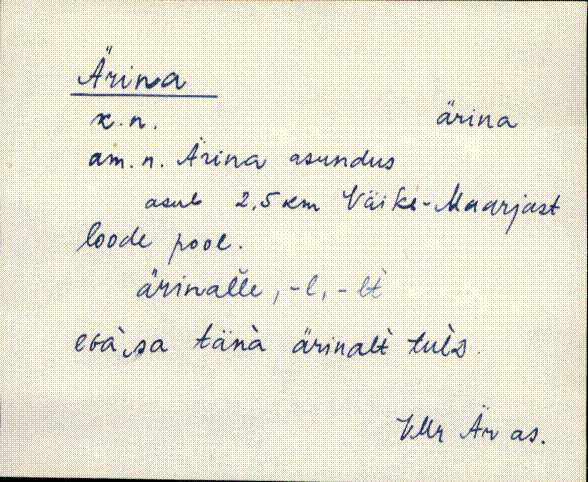 Ärina
k.n. ärina
am.n. Ärina asundus
asub 2,5 km Väike-Maarjast
loode pool.
ärinalle, -l, -lt
sa tänà ärinalt̀ tul̀D.
VMr Är as.